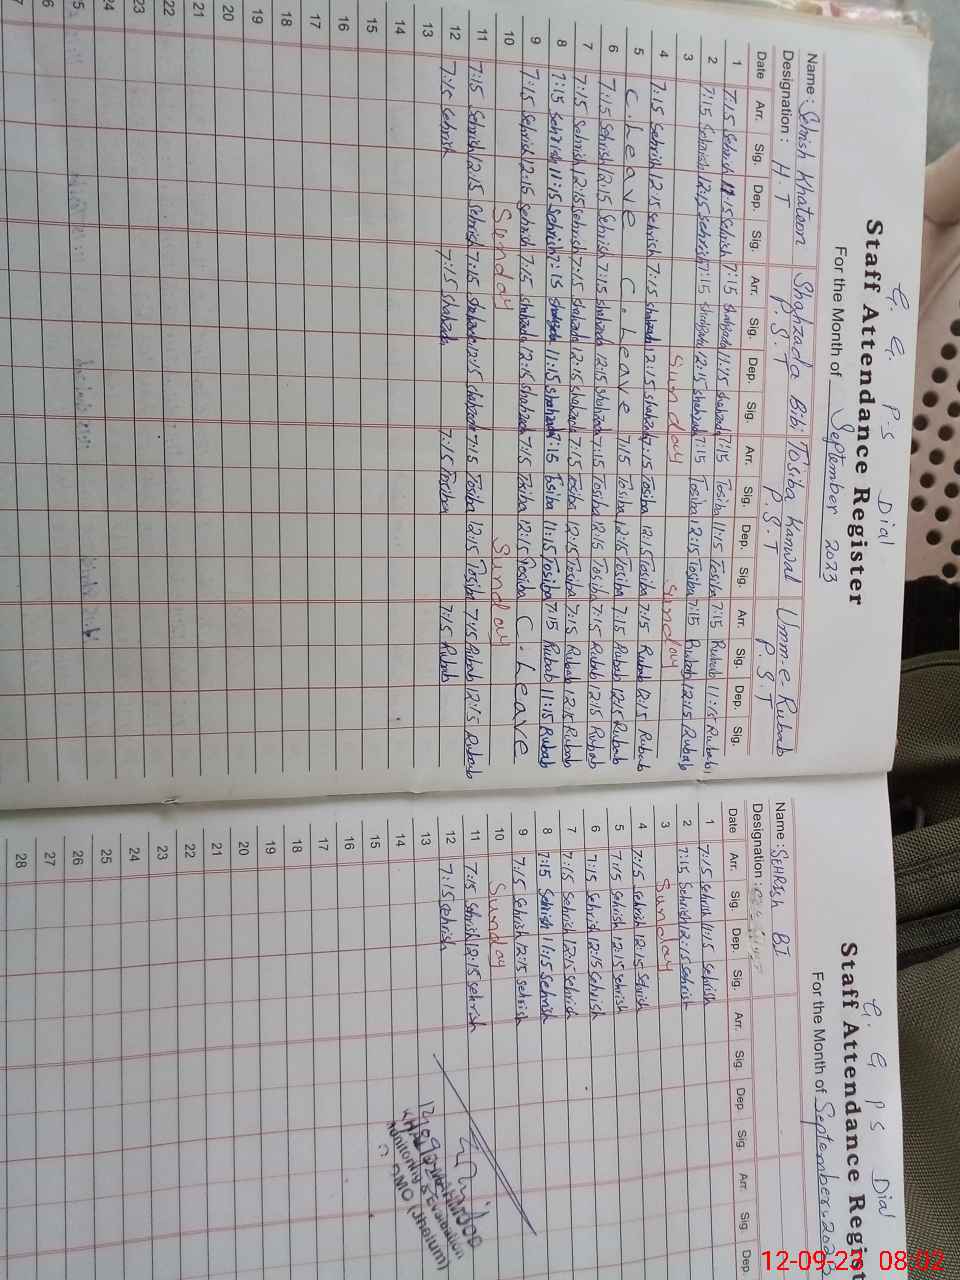 G. G. P.S Dial
Staff Attendance Register
For the Month of September 2023
Name: Sehrish Khatoon Shahzada Bibi Tosiba Kanwal Umm-e-Rubab
Designation: H.T P.S.T P.S.T P.S.T
Date Arr. Sig. Dep. Sig. Arr. Sig. Dep. Sig. Arr. Sig. Dep. Sig. Arr. Sig. Dep. Sig.
1 7:15 Sehrish 11:15 Sehrish 7:15 Shahzada 11:15 Shahzada 7:15 Tosiba 11:15 Tosiba 7:15 Rubab 11:15 Rubab
2 7:15 Sehrish 12:15 Sehrish 7:15 Shahzada 12:15 Shahzada 7:15 Tosiba 12:15 Tosiba 7:15 Rubab 12:15 Rubab
3 Sunday Sunday
4 7:15 Sehrish 12:15 Sehrish 7:15 Shahzada 12:15 Shahzada 7:15 Tosiba 12:15 Tosiba 7:15 Rubab 12:15 Rubab
5 C.Leave C.Leave 7:15 Tosiba 12:15 Tosiba 7:15 Rubab 12:15 Rubab
6 7:15 Sehrish 12:15 Sehrish 7:15 Shahzada 12:15 Shahzada 7:15 Tosiba 12:15 Tosiba 7:15 Rubab 12:15 Rubab
7 7:15 Sehrish 12:15 Sehrish 7:15 Shahzada 12:15 Shahzada 7:15 Tosiba 12:15 Tosiba 7:15 Rubab 12:15 Rubab
8 7:15 Sehrish 11:15 Sehrish 7:15 Shahzada 11:15 Shahzada 7:15 Tosiba 11:15 Tosiba 7:15 Rubab 11:15 Rubab
9 7:15 Sehrish 12:15 Sehrish 7:15 Shahzada 12:15 Shahzada 7:15 Tosiba 12:15 Tosiba C.Leave
10 Sunday Sunday
11 7:15 Sehrish 12:15 Sehrish 7:15 Shahzada 12:15 Shahzada 7:15 Tosiba 12:15 Tosiba 7:15 Rubab 12:15 Rubab
12 7:15 Sehrish 7:15 Shahzada 7:15 Tosiba 7:15 Rubab
13
14
15
16
17
18
19
20
21
22
23
24
25
26
27
G. G P S Dial
Staff Attendance Regist
For the Month of September 202
Name: SEHRISH BI
Designation:
Date Arr. Sig. Dep. Sig. Arr. Sig. Dep. Sig. Arr. Sig. Dep.
1 7:15 Sehrish 11:15 Sehrish
2 7:15 Sehrish 12:15 Sehrish
3 Sunday
4 7:15 Sehrish 12:15 Sehrish
5 7:15 Sehrish 12:15 Sehrish
6 7:15 Sehrish 12:15 Sehrish
7 7:15 Sehrish 12:15 Sehrish
8 7:15 Sehrish 11:15 Sehrish
9 7:15 Sehrish 12:15 Sehrish
10 Sunday
11 7:15 Sehrish 12:15 Sehrish
12 7:15 Sehrish
13
14
15
16
17
18
19
20
21
22
23
24
25
26
27
28
Monitoring & Evaluation
DMO (Jhelum)
12-09-23 08:02